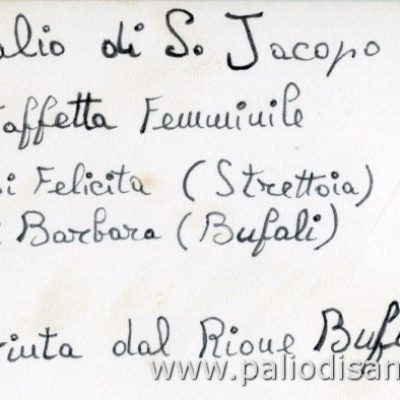 alio di S. Jacopo
taffetta Femminile
si Felicita (Strettoia)
i Barbara (Bufali)
inta dal Rione Bufa
www.paliodisan